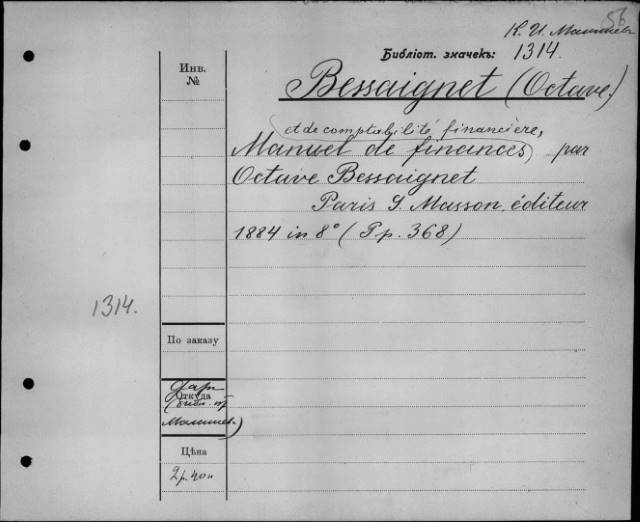 56
К. И. Малышев
Библіот. значекъ: 1314.
Инв.
№
Bessaignet (Octave)
et de comptabilité financière,
Manuel de finances par
Octave Bessaignet
Paris G. Masson, éditeur
1884 in 8° (Pp. 368)
1314.
По заказу
Дар
Откуда
Малышев)
Цѣна
2 р. 40 к